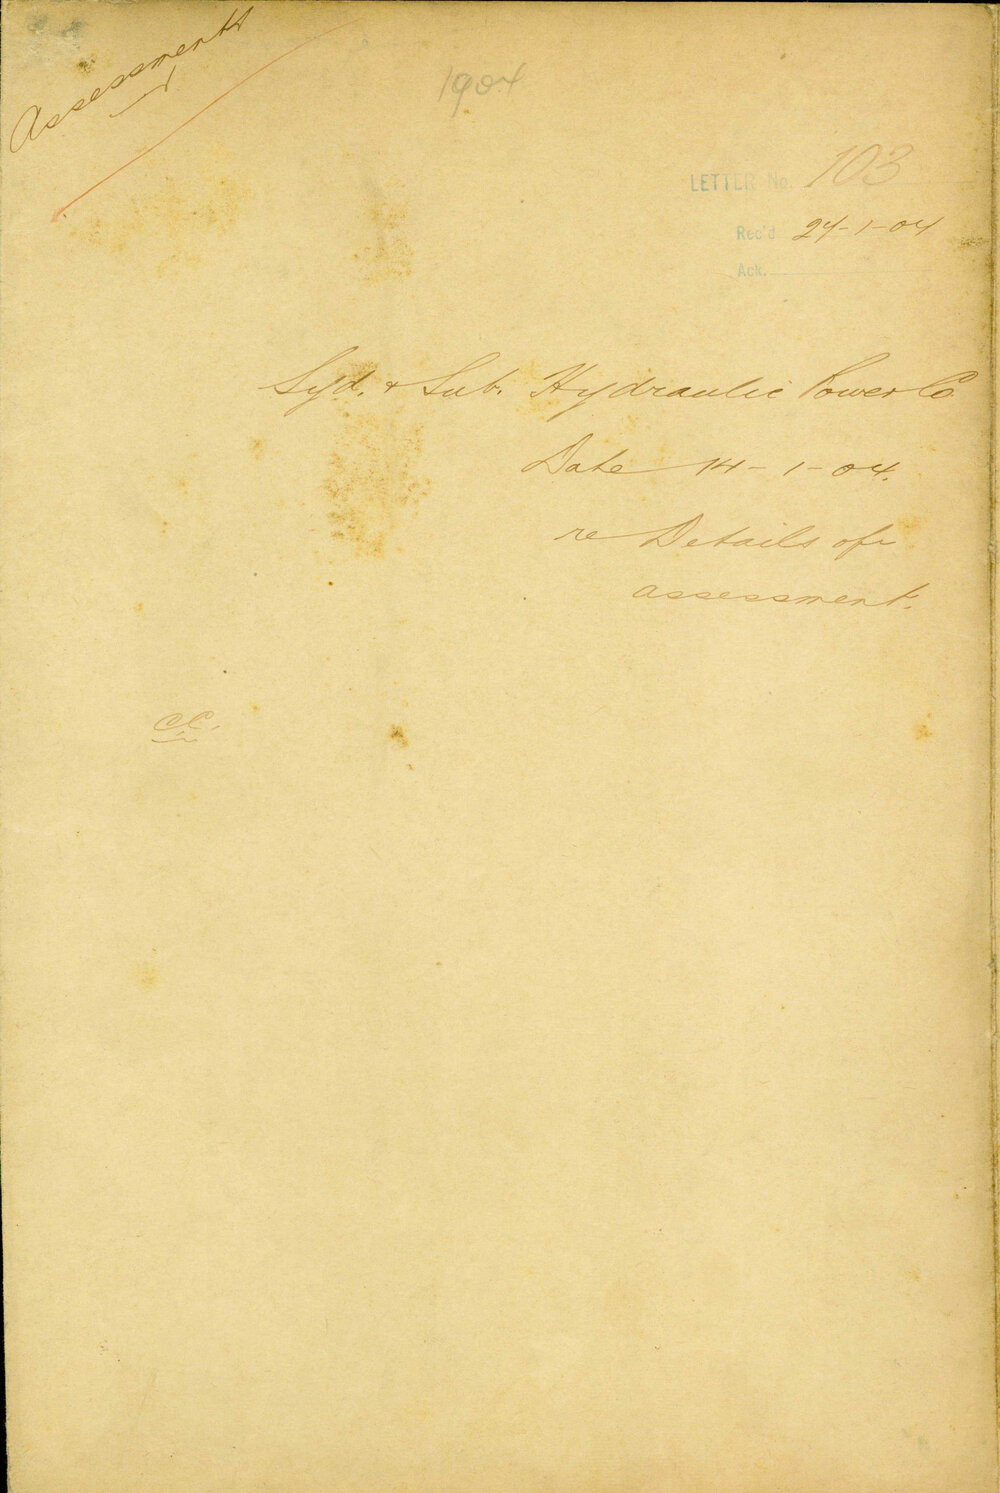 Assessment
1904
LETTER No. 103
Rec'd 24-1-04
Ack.
Syd. & Sub. Hydraulic Power Co
Date 14-1-04.
re Details of
assessment.
C.C.